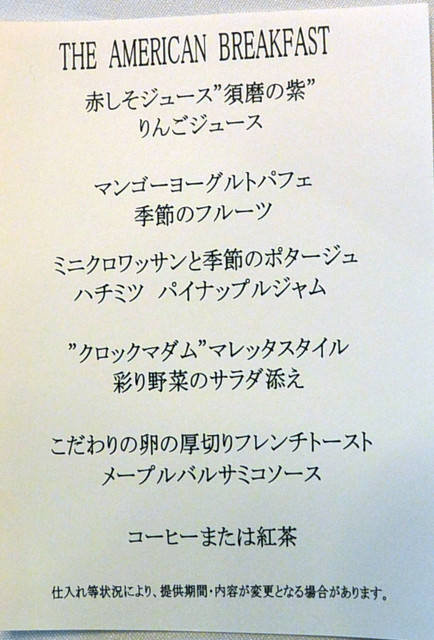 THE AMERICAN BREAKFAST
赤しそジュース”須磨の紫”
りんごジュース
マンゴーヨーグルトパフェ
季節のフルーツ
ミニクロワッサンと季節のポタージュ
ハチミツ パイナップルジャム
”クロックマダム”マレッタスタイル
彩り野菜のサラダ添え
こだわりの卵の厚切りフレンチトースト
メープルバルサミコソース
コーヒーまたは紅茶
仕入れ等状況により、提供期間・内容が変更となる場合があります。